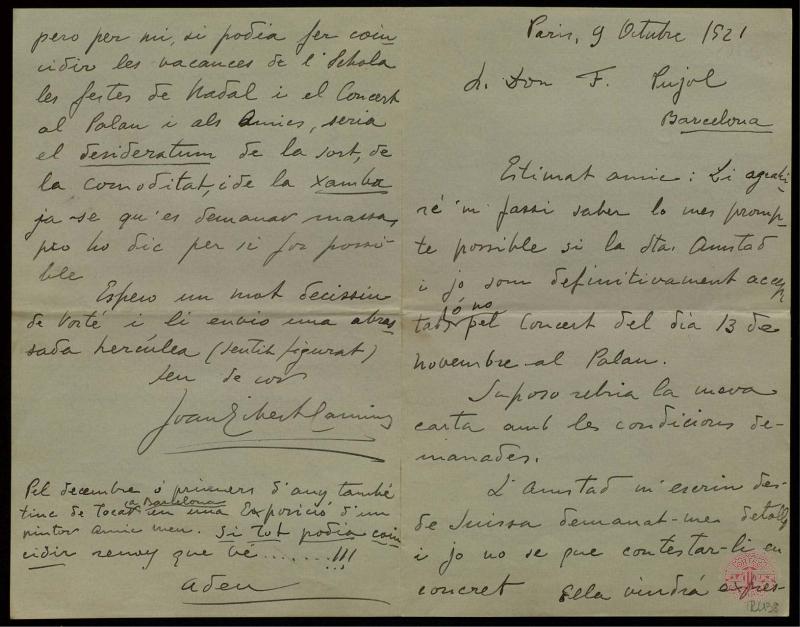 Paris, 9 Octubre 1921
Sr. Don F. Pujol
Barcelona
Estimat amic: Li agrahi-
ré 'm fassi saber lo mes promp-
te possible si la Sta. Amstad
i jo som definitivament accep-
tats ó no pel Concert del dia 13 de
novembre al Palau.
Suposo rebria la meva
carta amb les condicions de-
manades.
L'Amstad m'escriu des-
de Suissa demanat-me detalls
i jo no se que contestar-li en
concret Ella vindrá expres-
pero per mi, si podia fer coin-
cidir les vacances de l'Schola
les festes de Nadal i el Concert
al Palau i als Amics, seria
el desideratum de la sort, de
la comoditat, i de la xamba
ja-se qu'es demanar massa,
pro ho dic per si fos possi-
ble
Espero un mot decissiu
de Vosté i li envio una abras-
sada hercúlea (sentit figurat)
seu de cor
Joan Gibert Camins
Pel decembre ó primers d'any també
tinc de tocar a Barcelona en una Exposició d'un
pintor amic meu. Si tot podia coin-
cidir renoy que bé.......!!!
Adeu